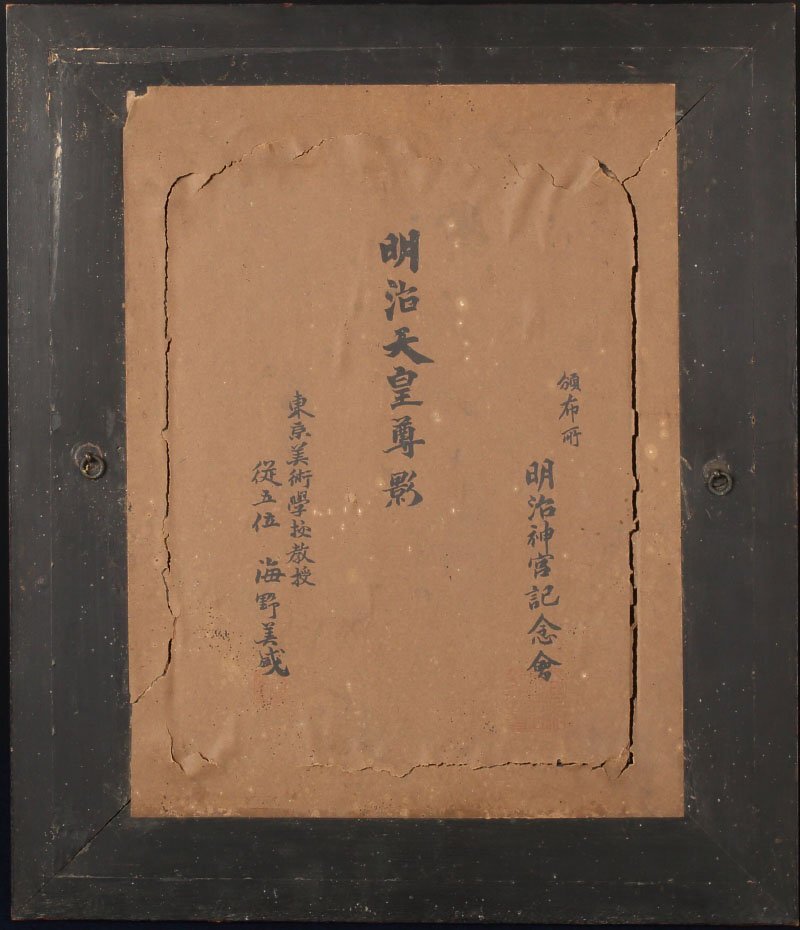 頒布所
明治神宮記念會
明治天皇尊影
東京美術學校教授
従五位 海野美盛